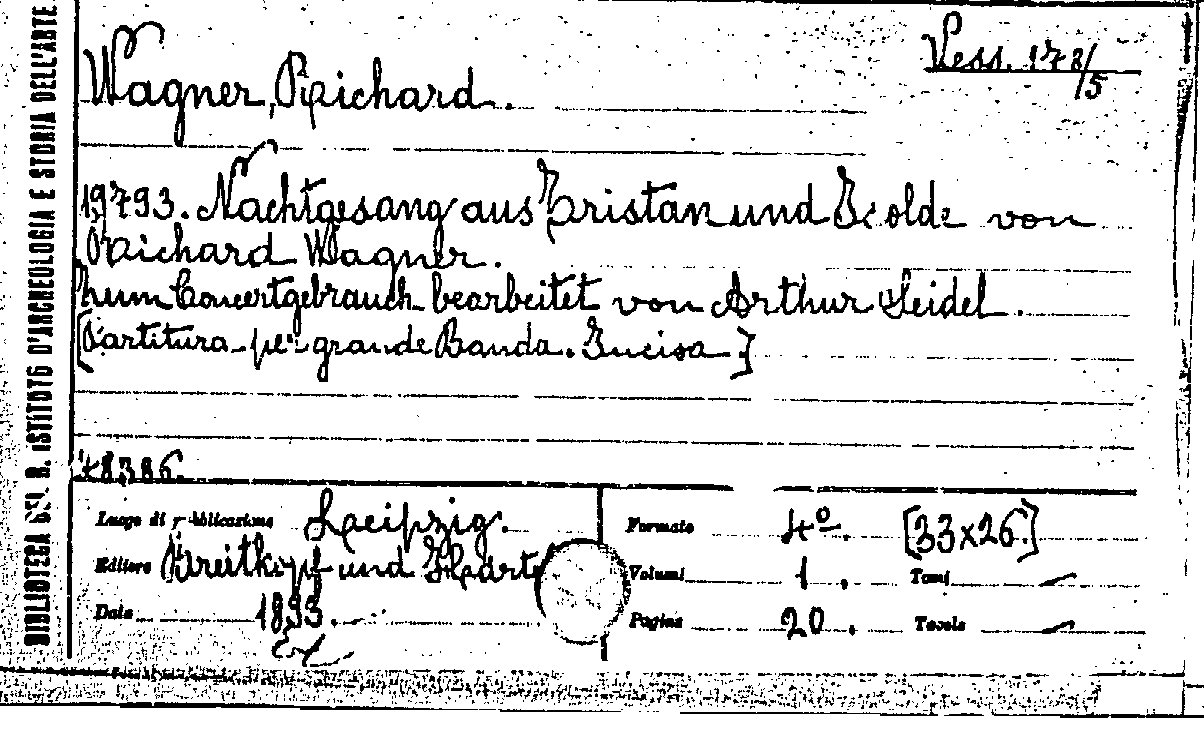 BIBLIOTECA DEL R. ISTITUTO D'ARCHEOLOGIA E STORIA DELL'ARTE
Vess. 178/5
Wagner, Richard.
19793. Nachtgesang aus Tristan und Isolde von
Richard Wagner.
Zum Concertgebrauch bearbeitet von Arthur Seidel.
[Partitura per grande Banda. Incisa]
78386.
Luogo di pubblicazione Leipzig.
Editore Breitkopf und Härte
Data 1893.
Formato 4º. [33x26.]
Volumi 1. Tomi —
Pagine 20. Tavole —